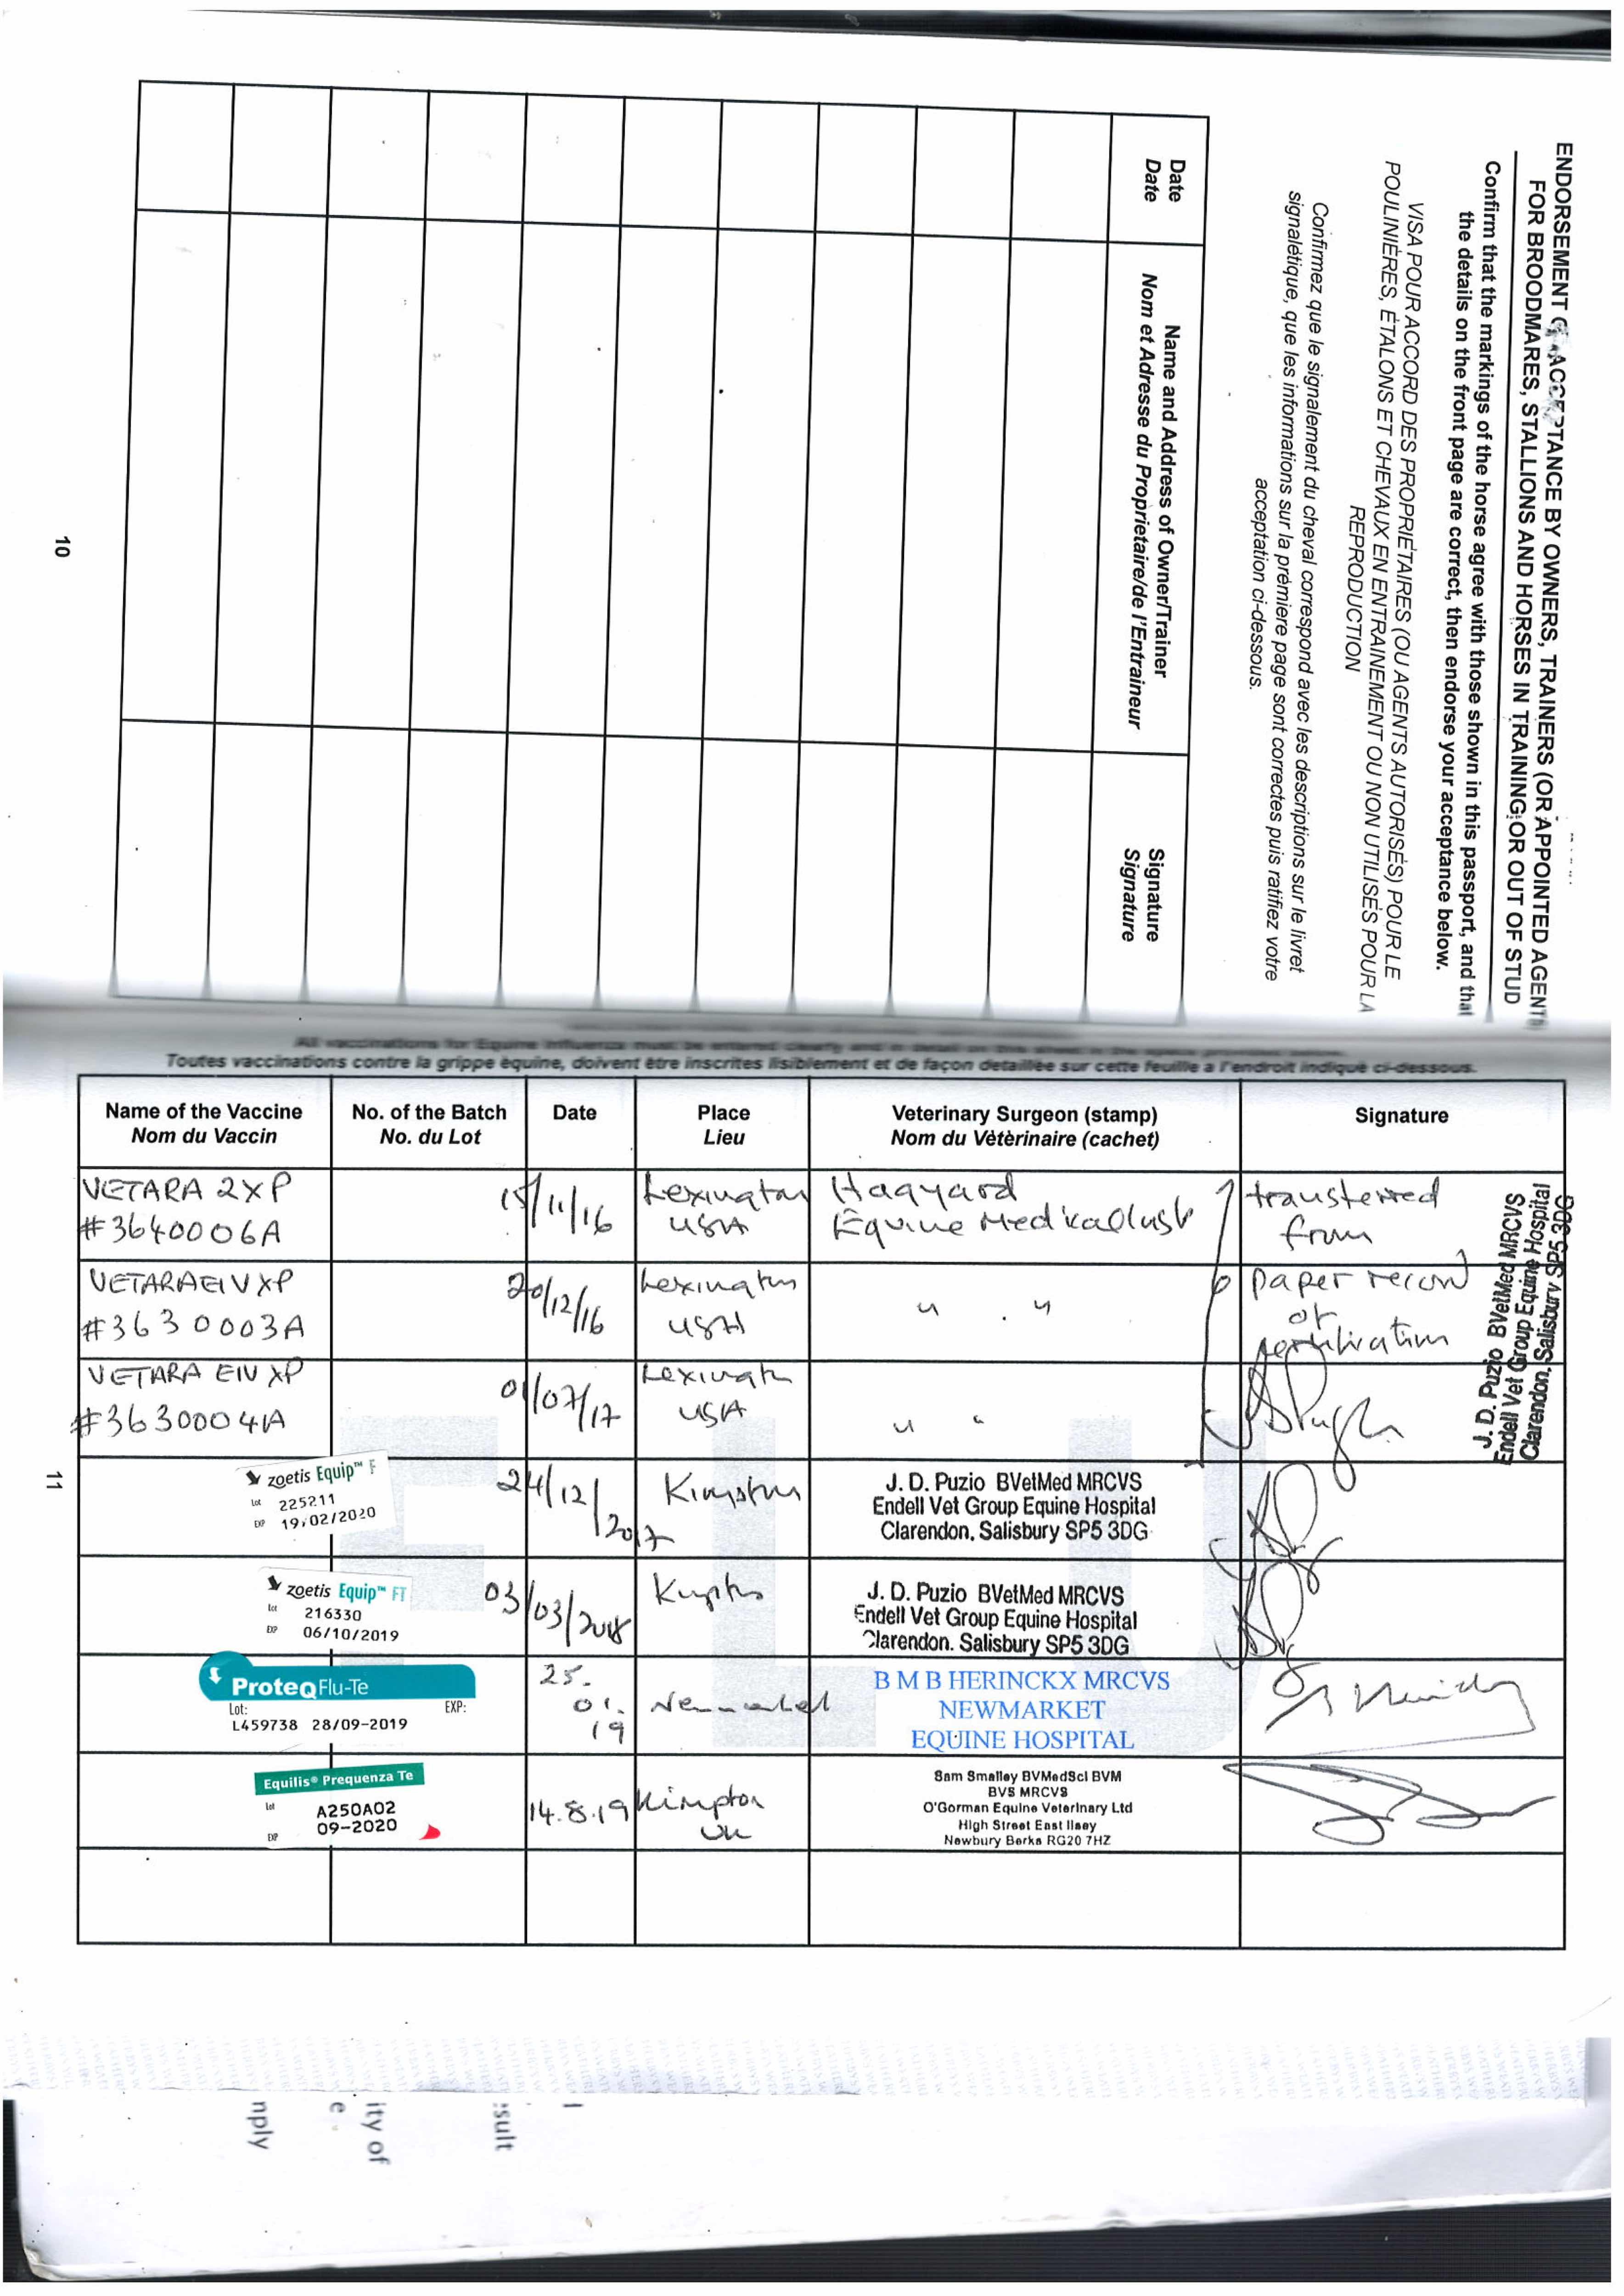 ENDORSEMENT ACCEPTANCE BY OWNERS, TRAINERS (OR APPOINTED AGENTS
FOR BROODMARES, STALLIONS AND HORSES IN TRAINING OR OUT OF STUD
Confirm that the markings of the horse agree with those shown in this passport, and that
the details on the front page are correct, then endorse your acceptance below.
VISA POUR ACCORD DES PROPRIÉTAIRES (OU AGENTS AUTORISÉS) POUR LE
POULINIÈRES, ÉTALONS ET CHEVAUX EN ENTRAINEMENT OU NON UTILISÉS POUR LA
REPRODUCTION
Confirmez que le signalement du cheval correspond avec les descriptions sur le livret
signalétique, que les informations sur la prémiere page sont correctes puis ratifiez votre
acceptation ci-dessous.
Date Name and Address of Owner/Trainer Signature
Date Nom et Adresse du Proprietaire/de l'Entraineur Signature
10
All vaccinations for Equine Influenza must be entered clearly and in detail on this sheet in the space provided below.
Toutes vaccinations contre la grippe èquine, doivent être inscrites lisiblement et de façon detaillèe sur cette feuille a l'endroit indiquè ci-dessous.
Name of the Vaccine No. of the Batch Date Place Veterinary Surgeon (stamp) Signature
Nom du Vaccin No. du Lot Lieu Nom du Vètèrinaire (cachet)
VETARA 2XP 15/11/16 Lexington Hagyard transferred
#3640006A USA Equine Medical from
VETARA EIV XP 20/12/16 Lexington " " paper record
#3630003A USA of
VETARA EIV XP 01/07/17 Lexington " "
#3630004A USA
J. D. Puzio BVetMed MRCVS
Endell Vet Group Equine Hospital
Clarendon, Salisbury SP5 3DG
zoetis Equip™ F 24/12/2017 J. D. Puzio BVetMed MRCVS
Lot 225211 Endell Vet Group Equine Hospital
EXP 19/02/2020 Clarendon, Salisbury SP5 3DG
zoetis Equip™ FT 03/03/2018 J. D. Puzio BVetMed MRCVS
Lot 216330 Endell Vet Group Equine Hospital
EXP 06/10/2019 Clarendon. Salisbury SP5 3DG
ProteqFlu-Te 25. 01. 19 Newmarket B M B HERINCKX MRCVS
Lot: EXP: NEWMARKET
L459738 28/09-2019 EQUINE HOSPITAL
Equilis® Prequenza Te 14.8.19 Kimpton Sam Smalley BVMedSci BVM
Lot A250A02 UK BVS MRCVS
EXP 09-2020 O'Gorman Equine Veterinary Ltd
High Street East Ilsey
Newbury Berks RG20 7HZ
FLU
11
sult
ity of
e
nply